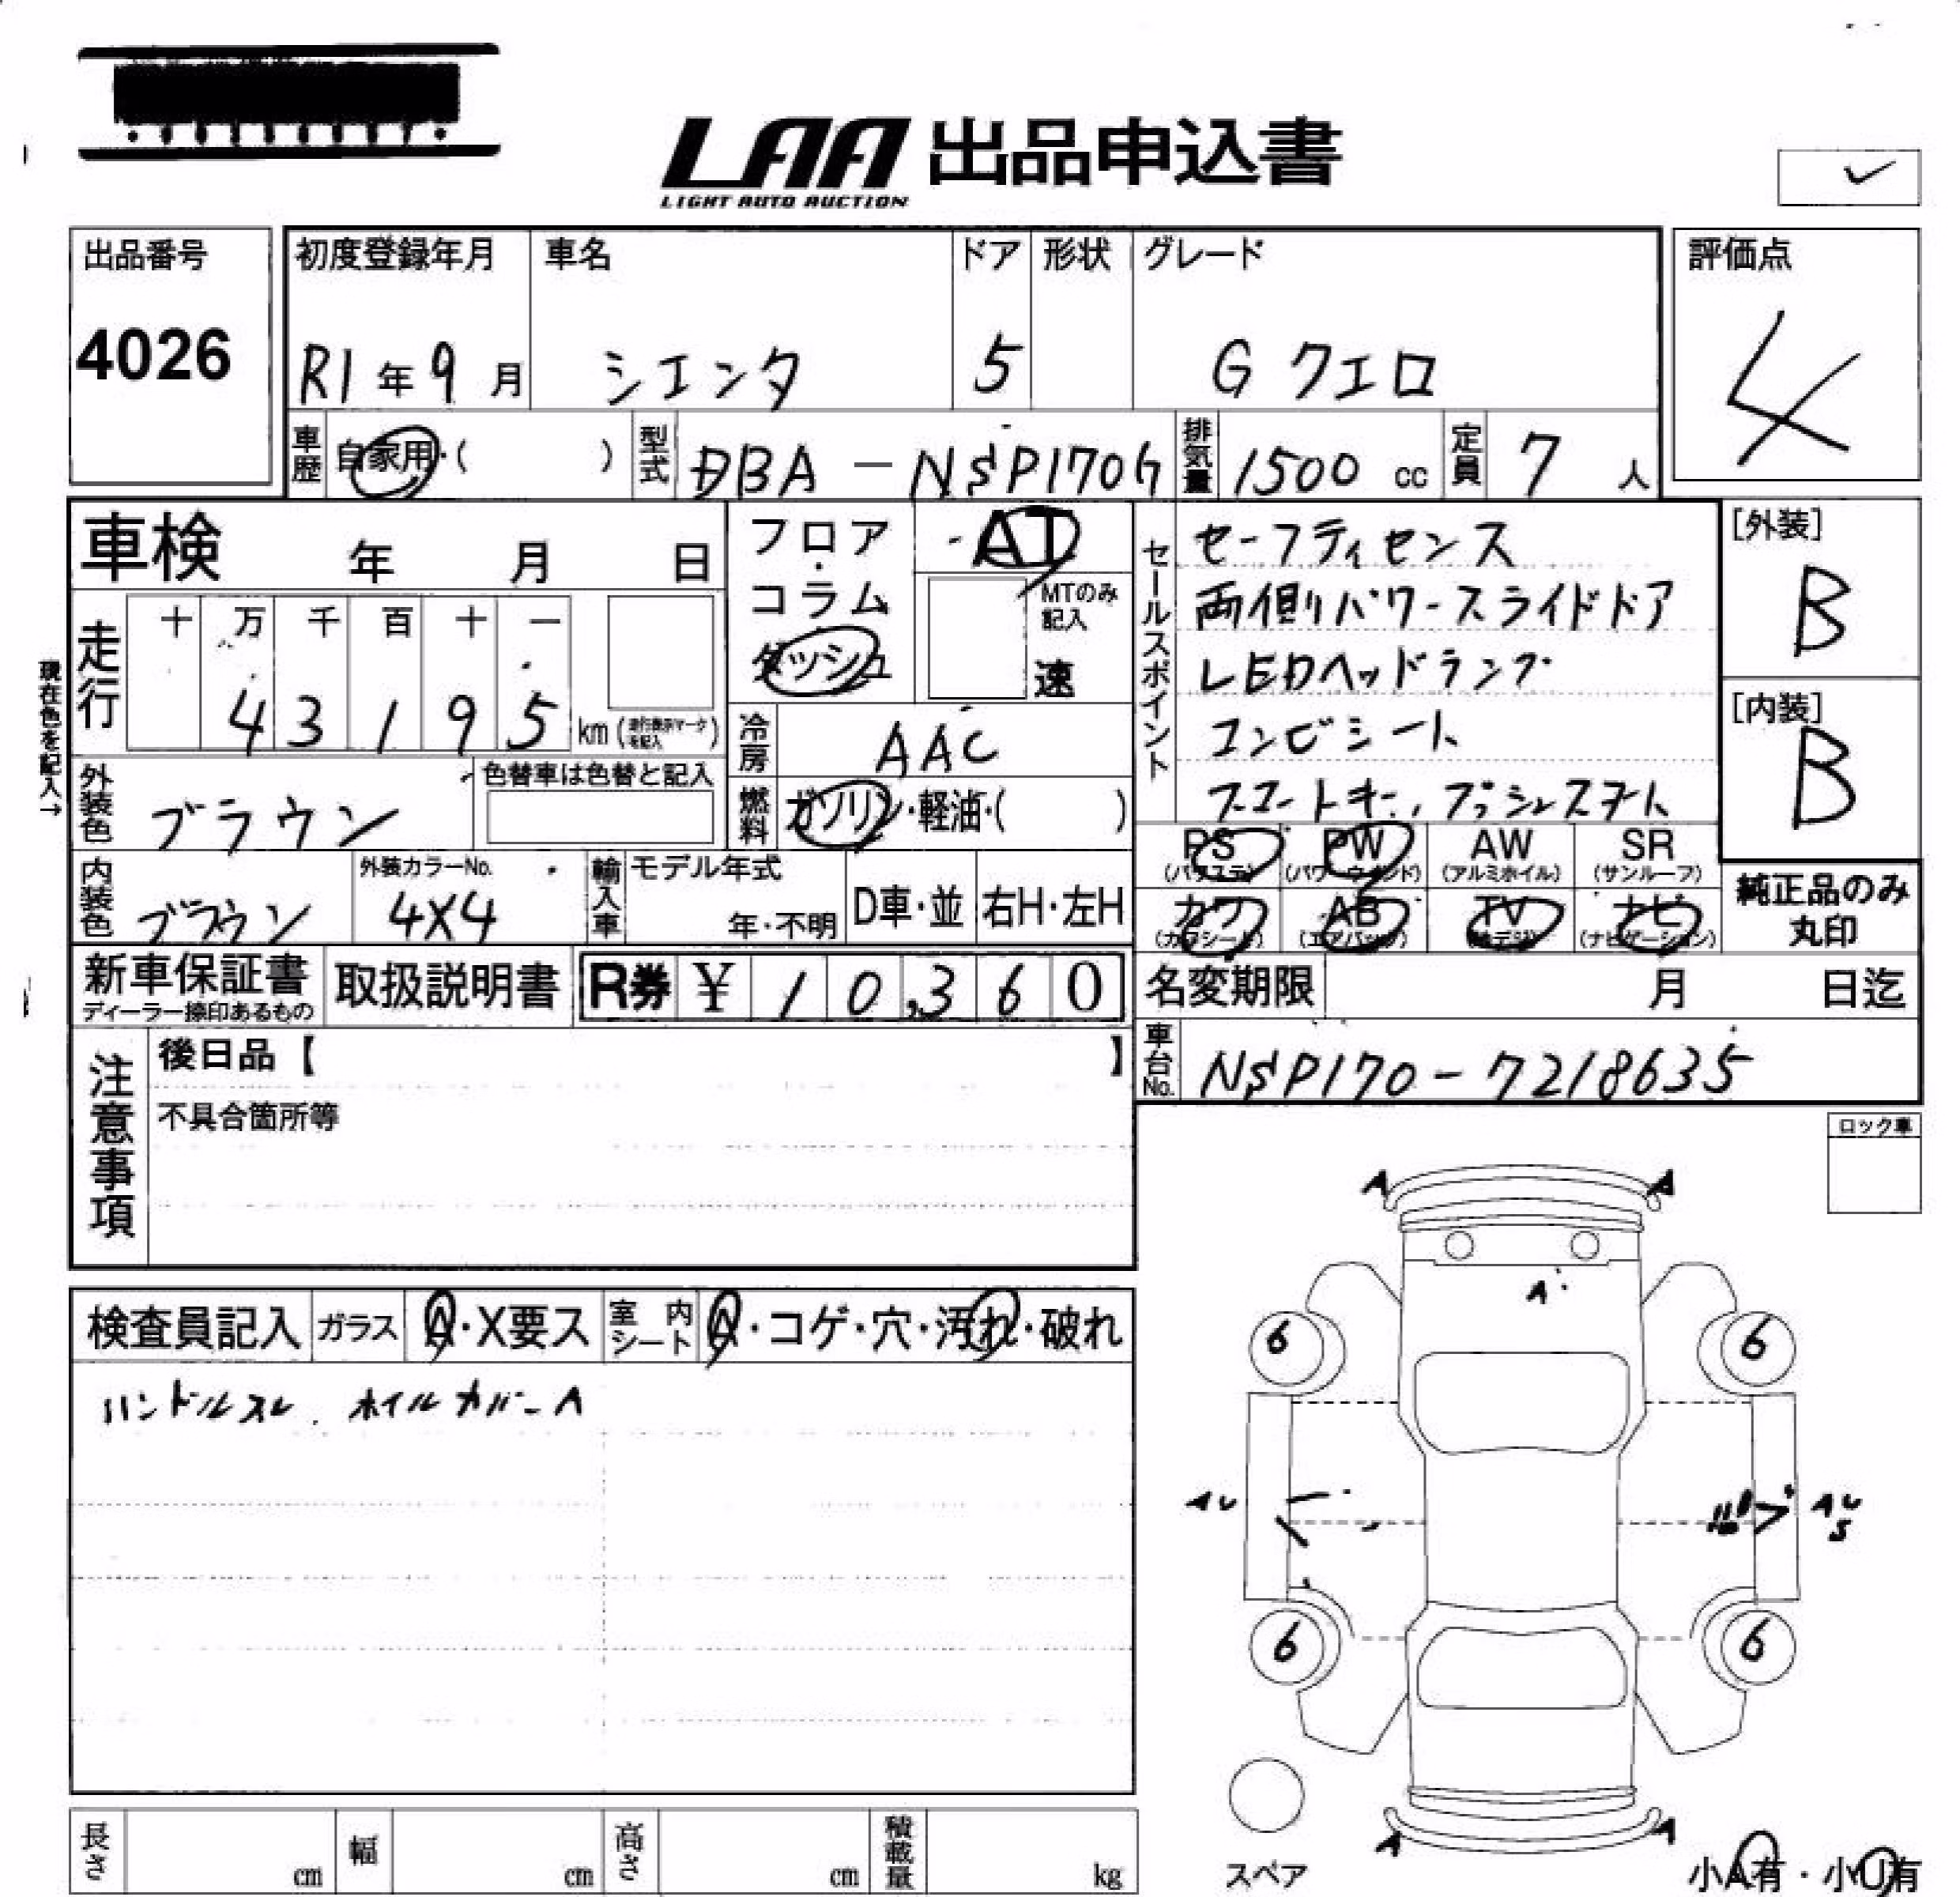 LAA 出品申込書
LIGHT AUTO AUCTION
出品番号
4026
初度登録年月
R1年9月
車名
シエンタ
ドア
5
形状
グレード
G クエロ
評価点
4
車歴 自家用・( )
型式 DBA-NSP170G
排気量 1500 cc
定員 7人
車検 年 月 日
走行 十 万 千 百 十 一
43195 km
現在色を記入→
フロア・コラム
ダッシュ
AT
MTのみ記入
速
冷房 AAC
燃料 ガソリン・軽油・( )
外装色 ブラウン
色替車は色替と記入
内装色 ブラウン
外装カラーNo.
4X4
輸入車 モデル年式
年・不明
D車・並
右H・左H
セールスポイント
セーフティセンス
両側パワースライドドア
LEDヘッドランプ
コンビシート
スマートキー、プッシュスタート
[外装]
B
[内装]
B
PS (パワステ)
PW (パワーウインド)
AW (アルミホイル)
SR (サンルーフ)
カワ (カワシート)
AB (エアバック)
TV (地デジ)
ナビ (ナビゲーション)
純正品のみ
丸印
新車保証書
ディーラー捺印あるもの
取扱説明書
R券 ¥ 10,360
名変期限 月 日迄
車台No. NSP170-7218635
注意事項
後日品【 】
不具合箇所等
ロック車
検査員記入
ガラス A・X要ス
室内シート A・コゲ・穴・汚れ・破れ
ハンドルスレ、ホイルカバーA
A A
A
6 6
AU AU
S
6 6
A A
スペア
小A有・小U有
長さ cm
幅 cm
高さ cm
積載量 kg